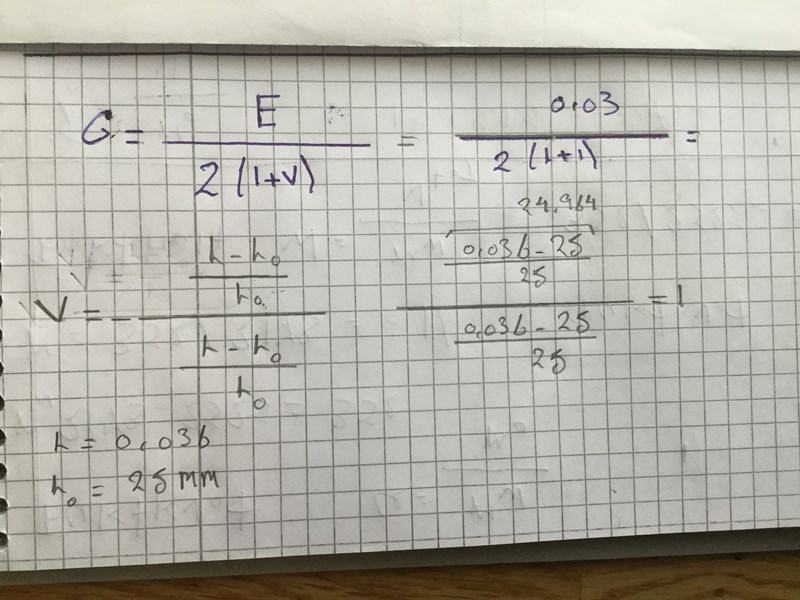 G = E / 2 (1+V) = 0.03 / 2 (1+1) =
24.964
V = - ((h - h₀) / h₀) / ((h - h₀) / h₀) ((0.036 - 25) / 25) / ((0.036 - 25) / 25) = 1
h = 0.036
h₀ = 25 mm